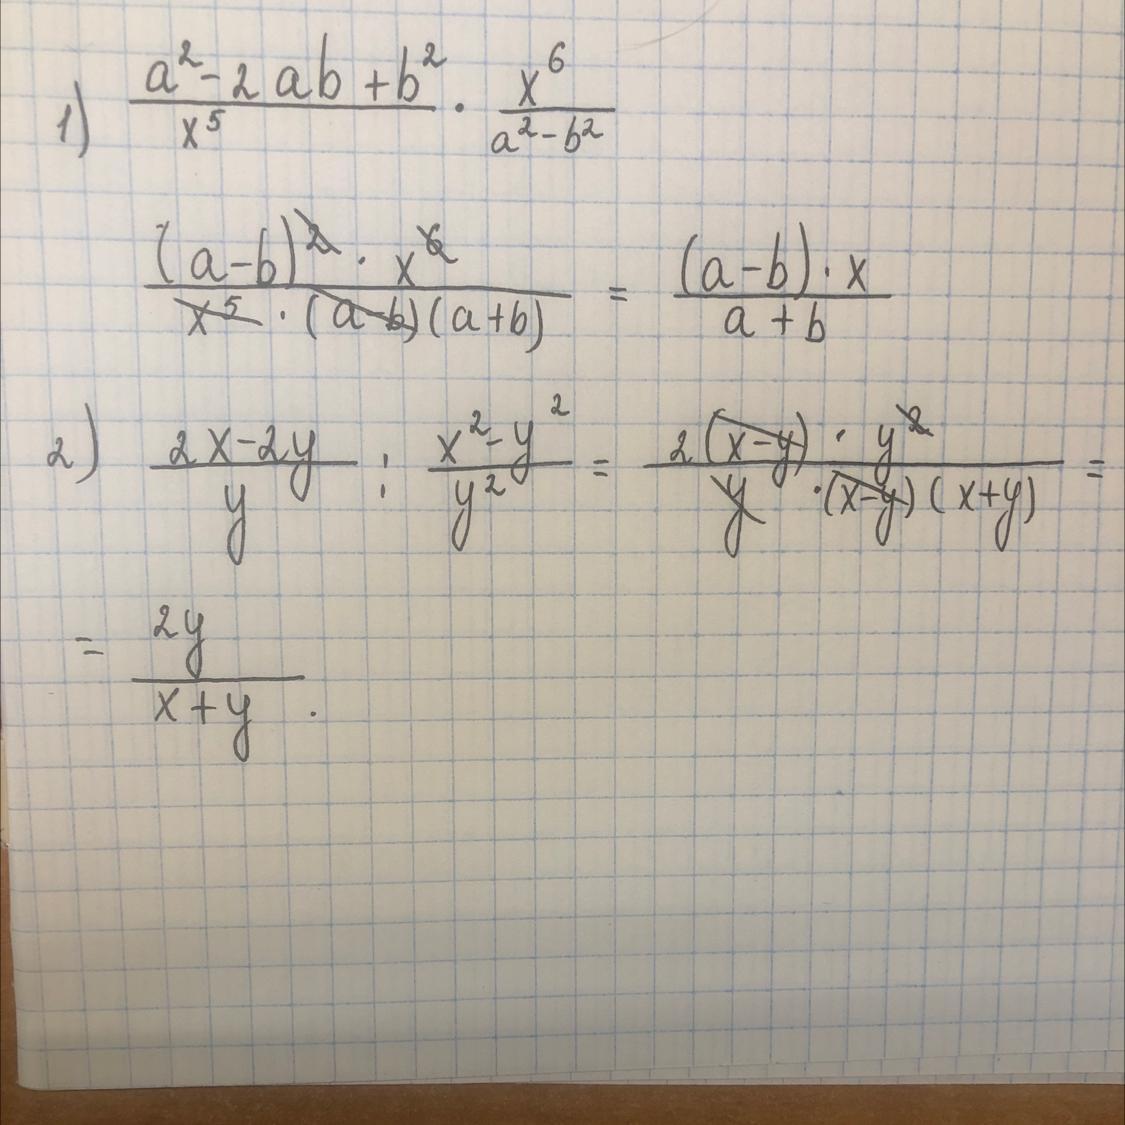 1) \frac{a^2 - 2ab + b^2}{x^5} \cdot \frac{x^6}{a^2 - b^2}
\frac{(a-b)^2 \cdot x^6}{x^5 \cdot (a-b)(a+b)} = \frac{(a-b) \cdot x}{a+b}
2) \frac{2x - 2y}{y} : \frac{x^2 - y^2}{y^2} = \frac{2(x-y) \cdot y^2}{y \cdot (x-y)(x+y)} =
= \frac{2y}{x+y}.